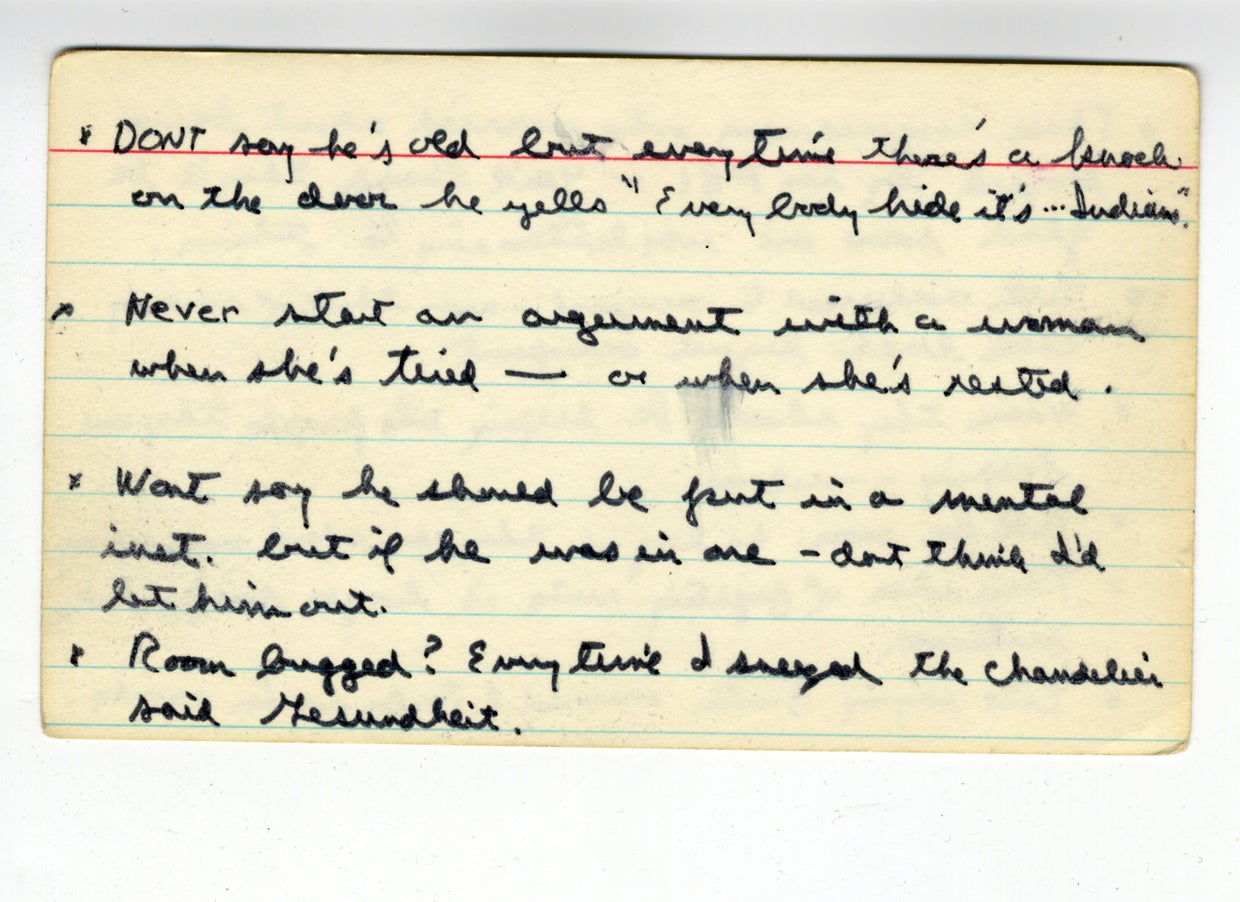 * DONT say he's old but everytime there's a knock
on the door he yells "Everybody hide it's... Indians".
* Never start an argument with a woman
when she's tired — or when she's rested.
* Wont say he should be put in a mental
inst. but if he was in one - dont think I'd
let him out.
* Room bugged? Everytime I sneezed the chandelier
said Gesundheit.